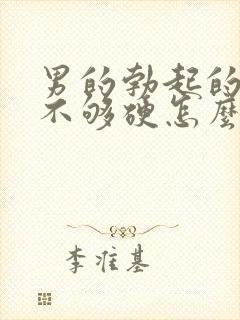 男的勃起的
不够硬怎麽
李准基